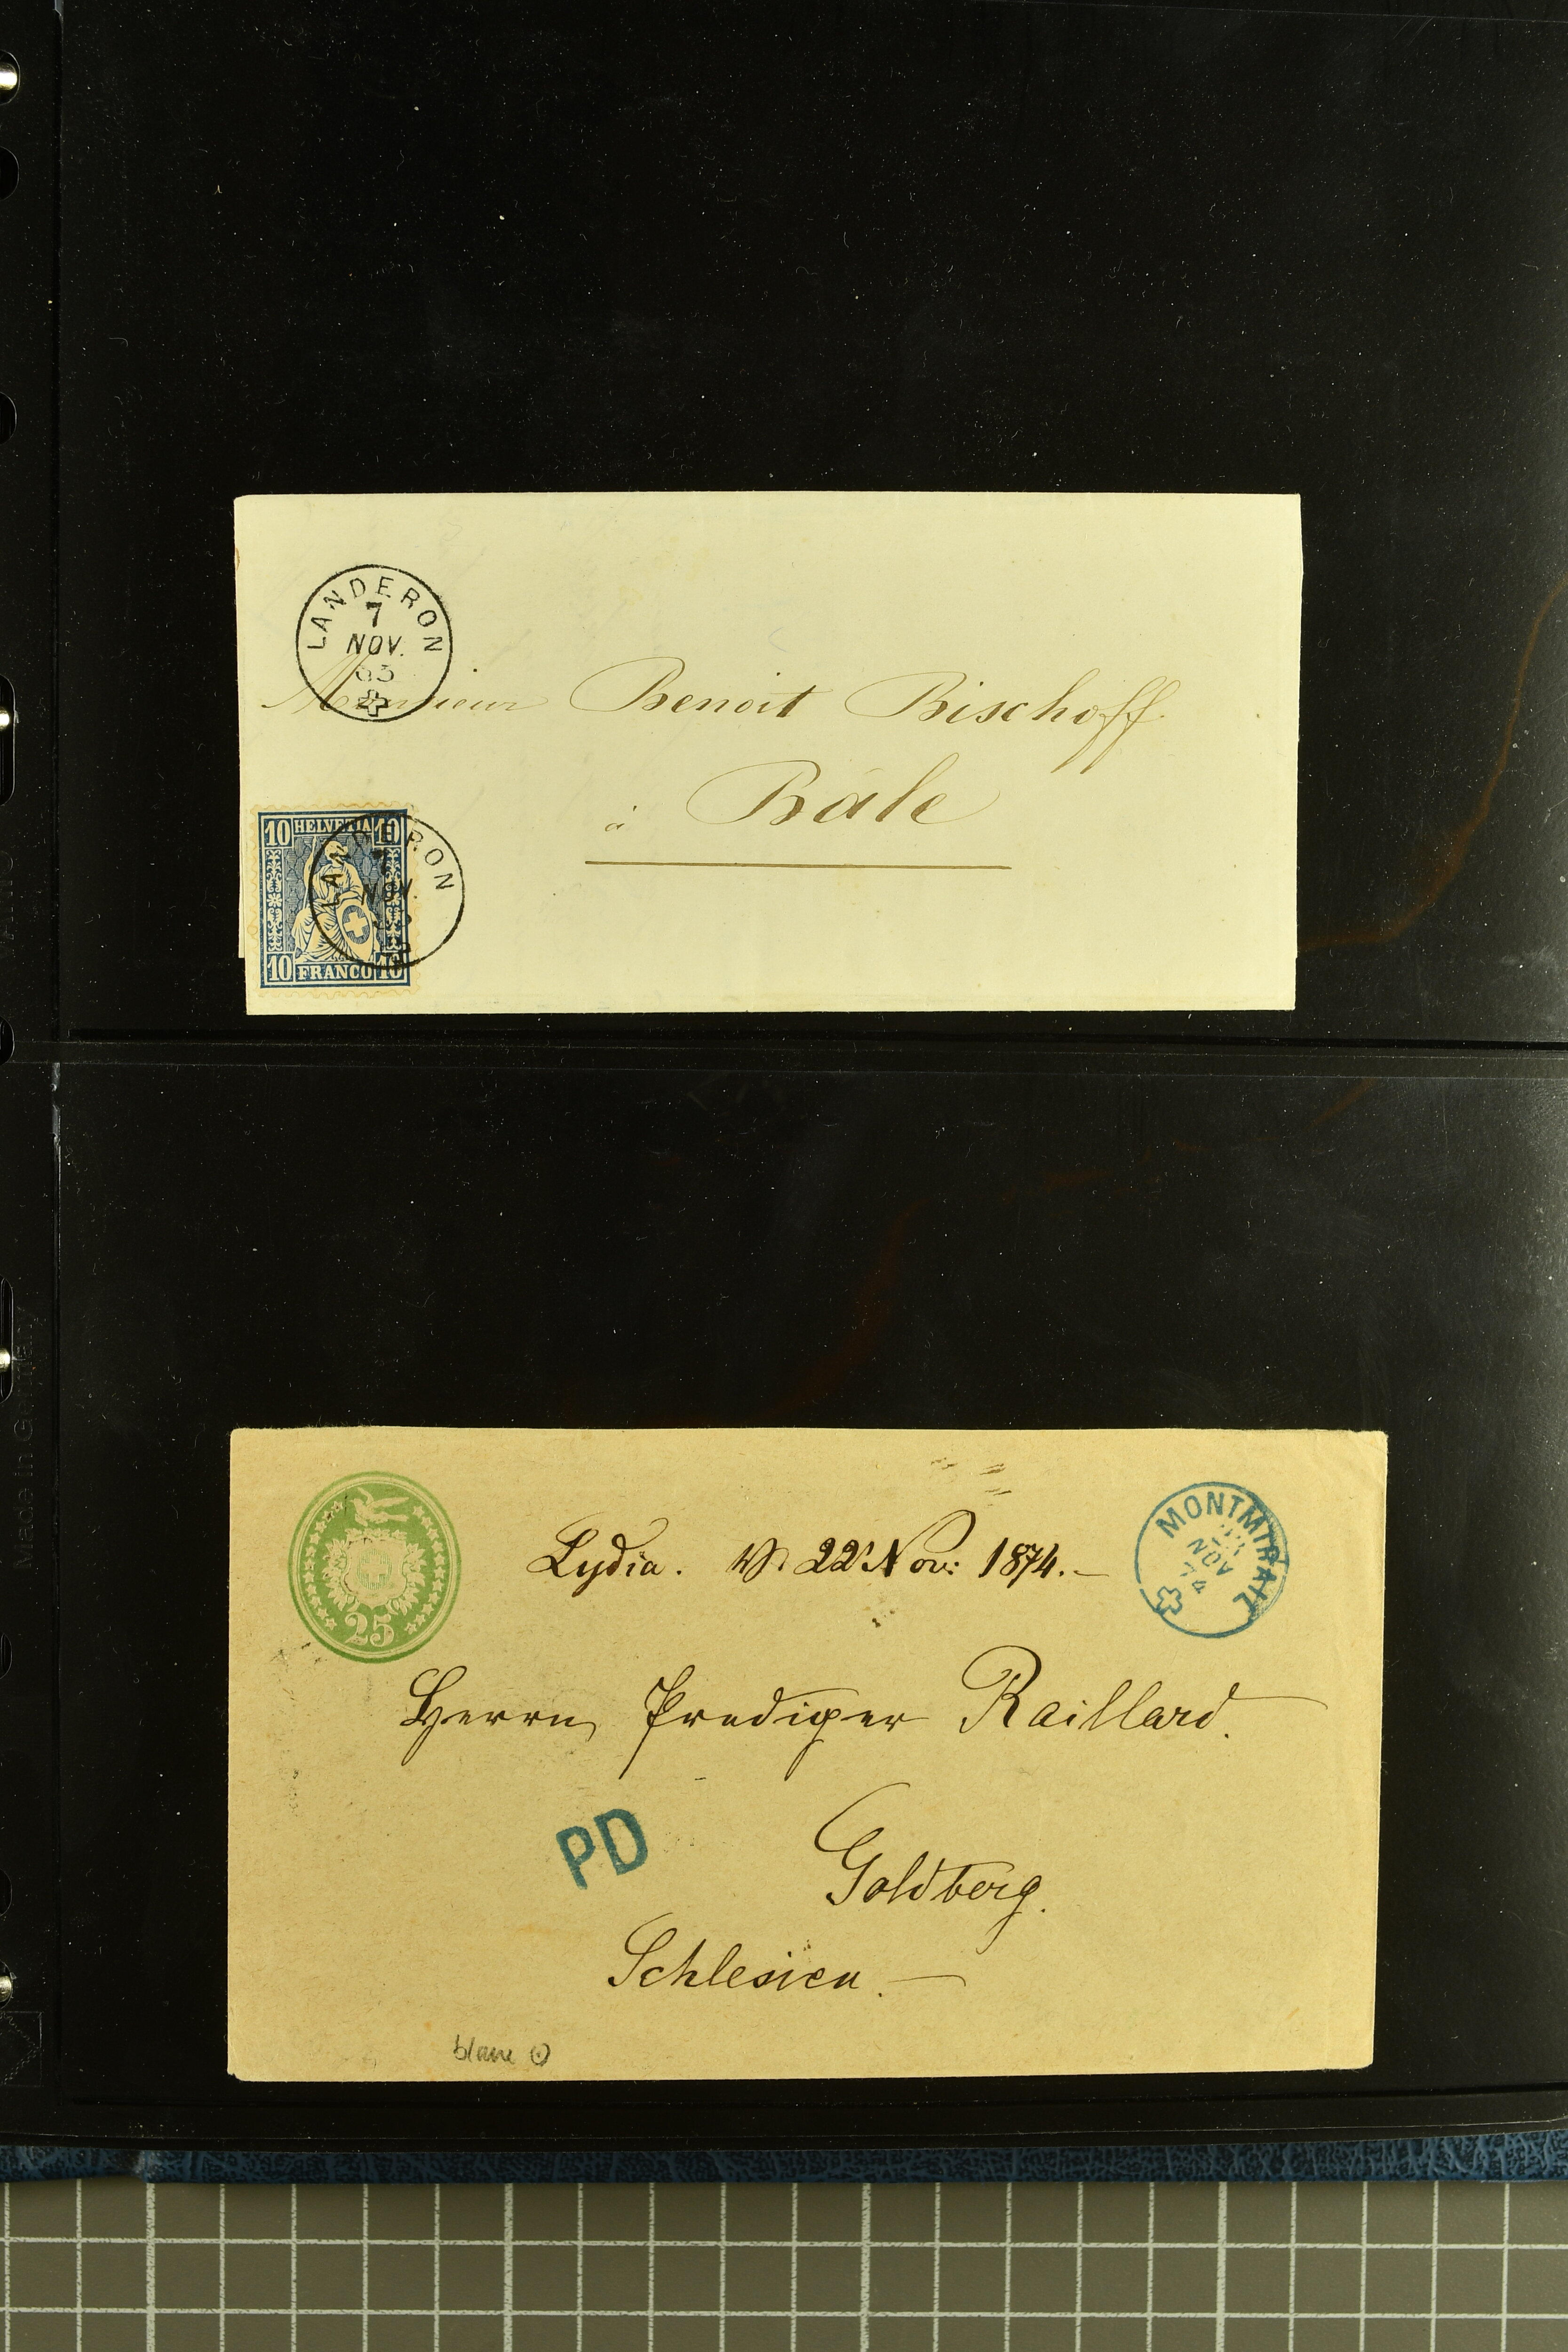 LANDERON
7
NOV.
63
Monsieur Benoit Bischoff
à Bâle
10 HELVETIA 10
LANDERON
7
NOV.
10 FRANCO 10
25
Lydia. 22 Nov: 1874.-
MONTMIRAIL
NOV
74
Herrn Prediger Raillard.
PD
Goldberg.
Schlesien.-
Made in Germany